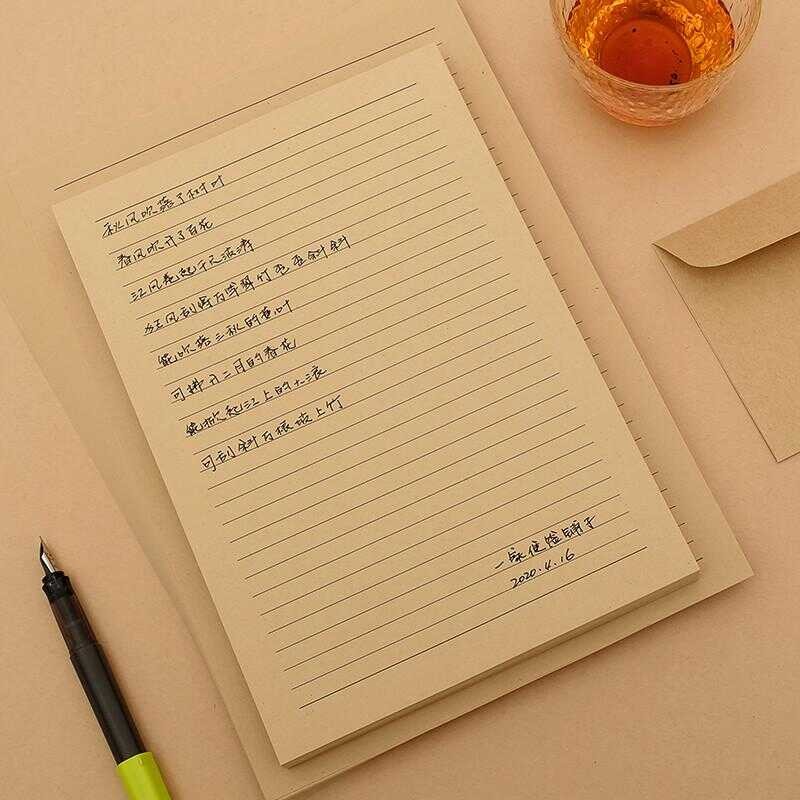 秋风吹落了树叶
春风吹开了百花
江风卷起千尺波涛
狂风刮得万竿翠竹歪歪斜斜
能吹落三秋的黄叶
可拂开二月的春花
能掀起江上的大浪
可刮斜万根坡上竹
一家便签铺子
2020.4.16